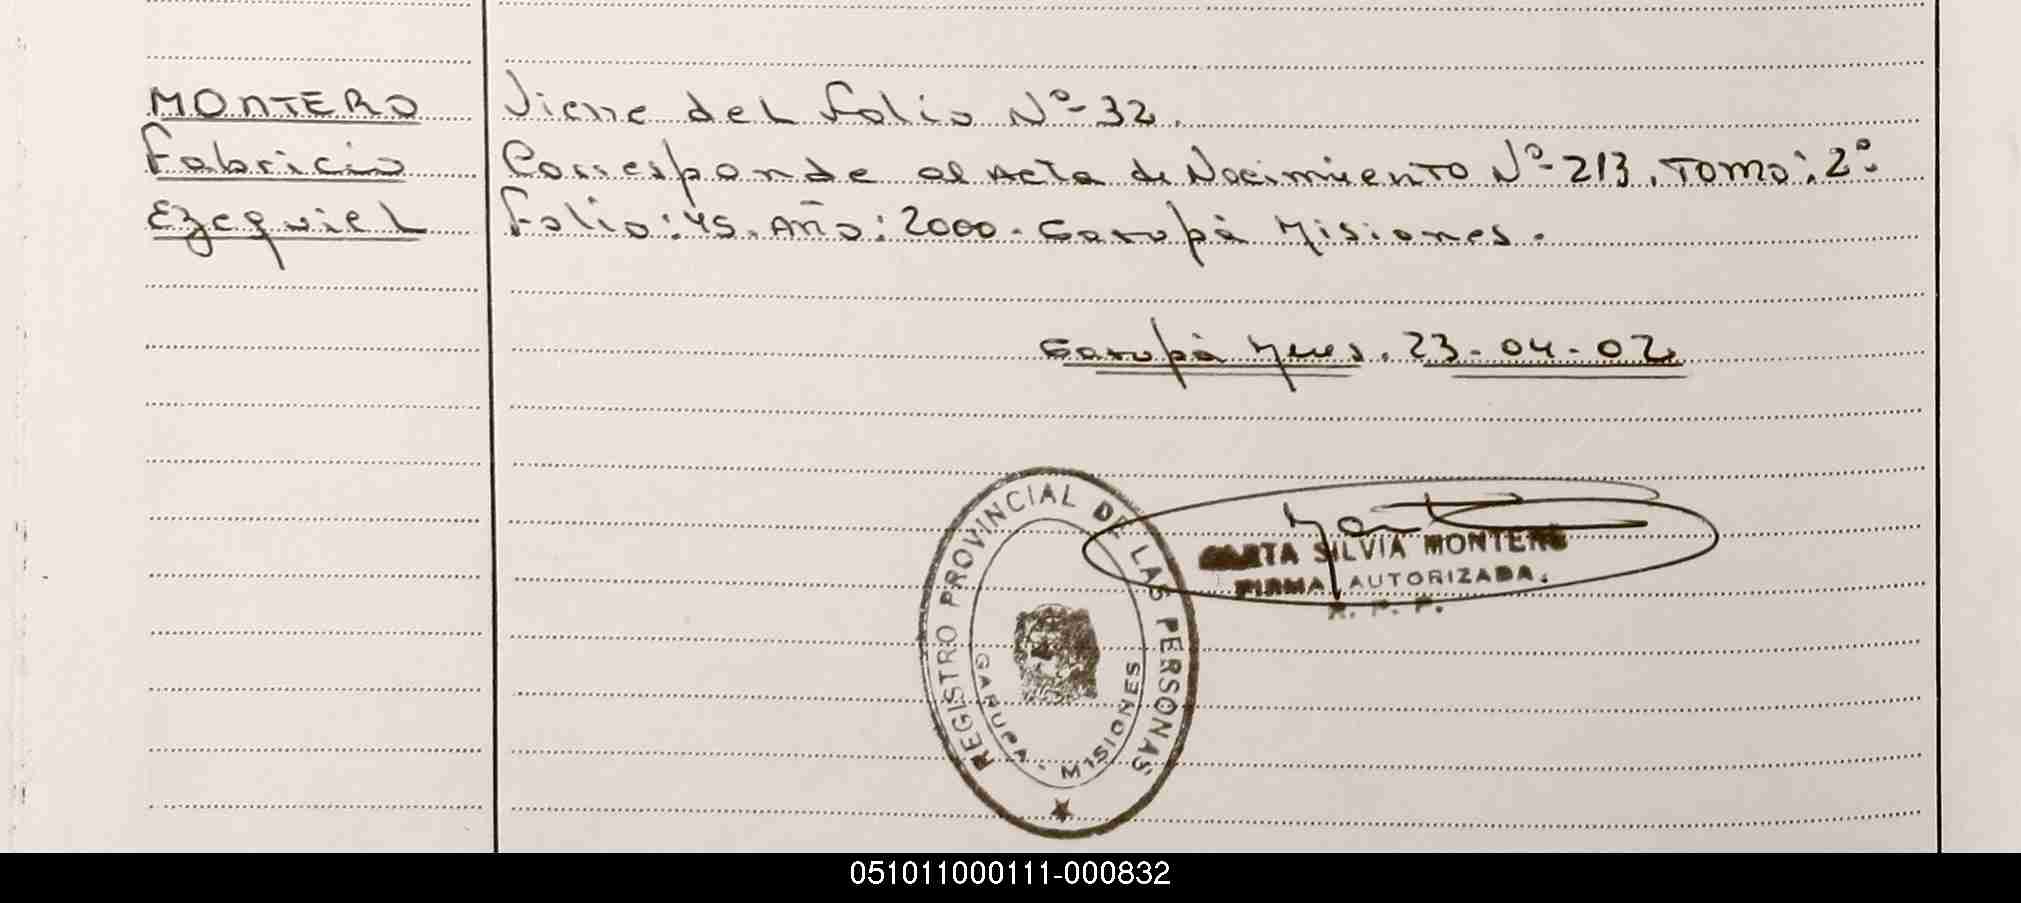 MONTERO Viene del Folio Nº-32.
Fabricio Corresponde al Acta de Nacimiento Nº-213. Tomo: 2º-
Ezequiel Folio: 45. Año: 2000. Garupá Misiones.
Garupá Mnes. 23-04-02
REGISTRO PROVINCIAL DE LAS PERSONAS
GARUPA - MISIONES
SILVIA MONTERO
FIRMA AUTORIZADA.
051011000111-000832